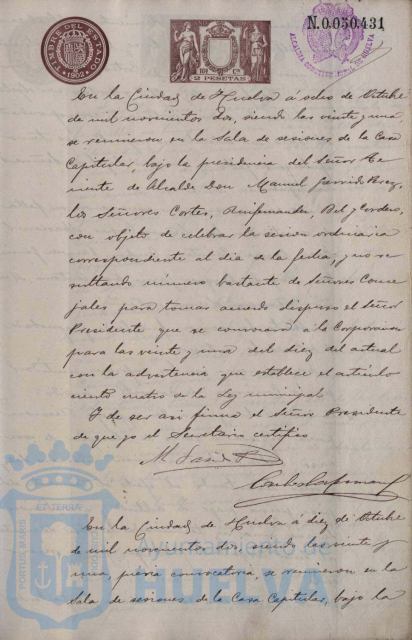 TIMBRE DEL ESTADO
1902
2 PESETAS
N.0.050.431
En la Ciudad de Huelva á ocho de Octubre
de mil novecientos dos, siendo las veinte y una,
se reunieron en la Sala de sesiones de la Casa
Capitular, bajo la presidencia del Señor Te-
niente de Alcalde Don Manuel Garrido Perez,
los Señores Cortes, Bel y Cordero,
con objeto de celebrar la sesion ordinaria
correspondiente al dia de la fecha, y no re-
sultando número bastante de Señores Conce
jales para tomar acuerdo dispuso el Señor
Presidente que se convocara á la Corporacion
para las veinte y una del diez del actual
con la advertencia que establece el artículo
ciento cuatro de la Ley municipal.
Y de ser asi firma el Señor Presidente
de que yo el Secretario certifico
En la Ciudad de Huelva á diez de Octubre
de mil novecientos dos, siendo las veinte y
una, previa convocatoria, se reunieron en la
Sala de sesiones de la Casa Capitular, bajo la
PORTUS MARIS
ET TERRÆ
Ayuntamiento de
HUELVA